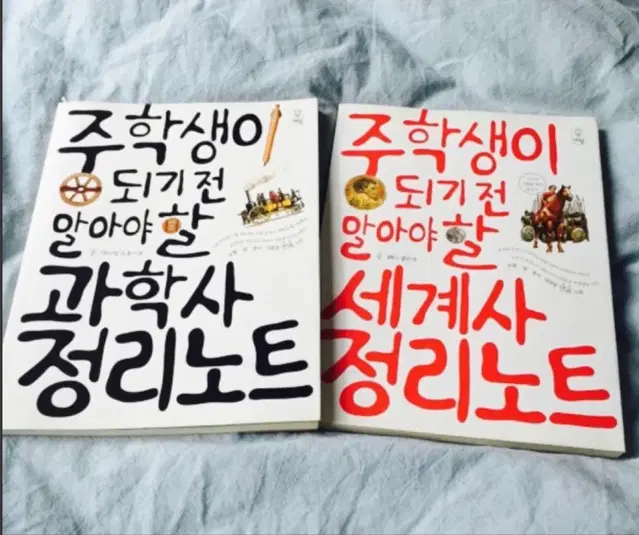 중학생이
되기 전
알아야 할
과학사
정리노트
중학생이
되기 전
알아야 할
세계사
정리노트